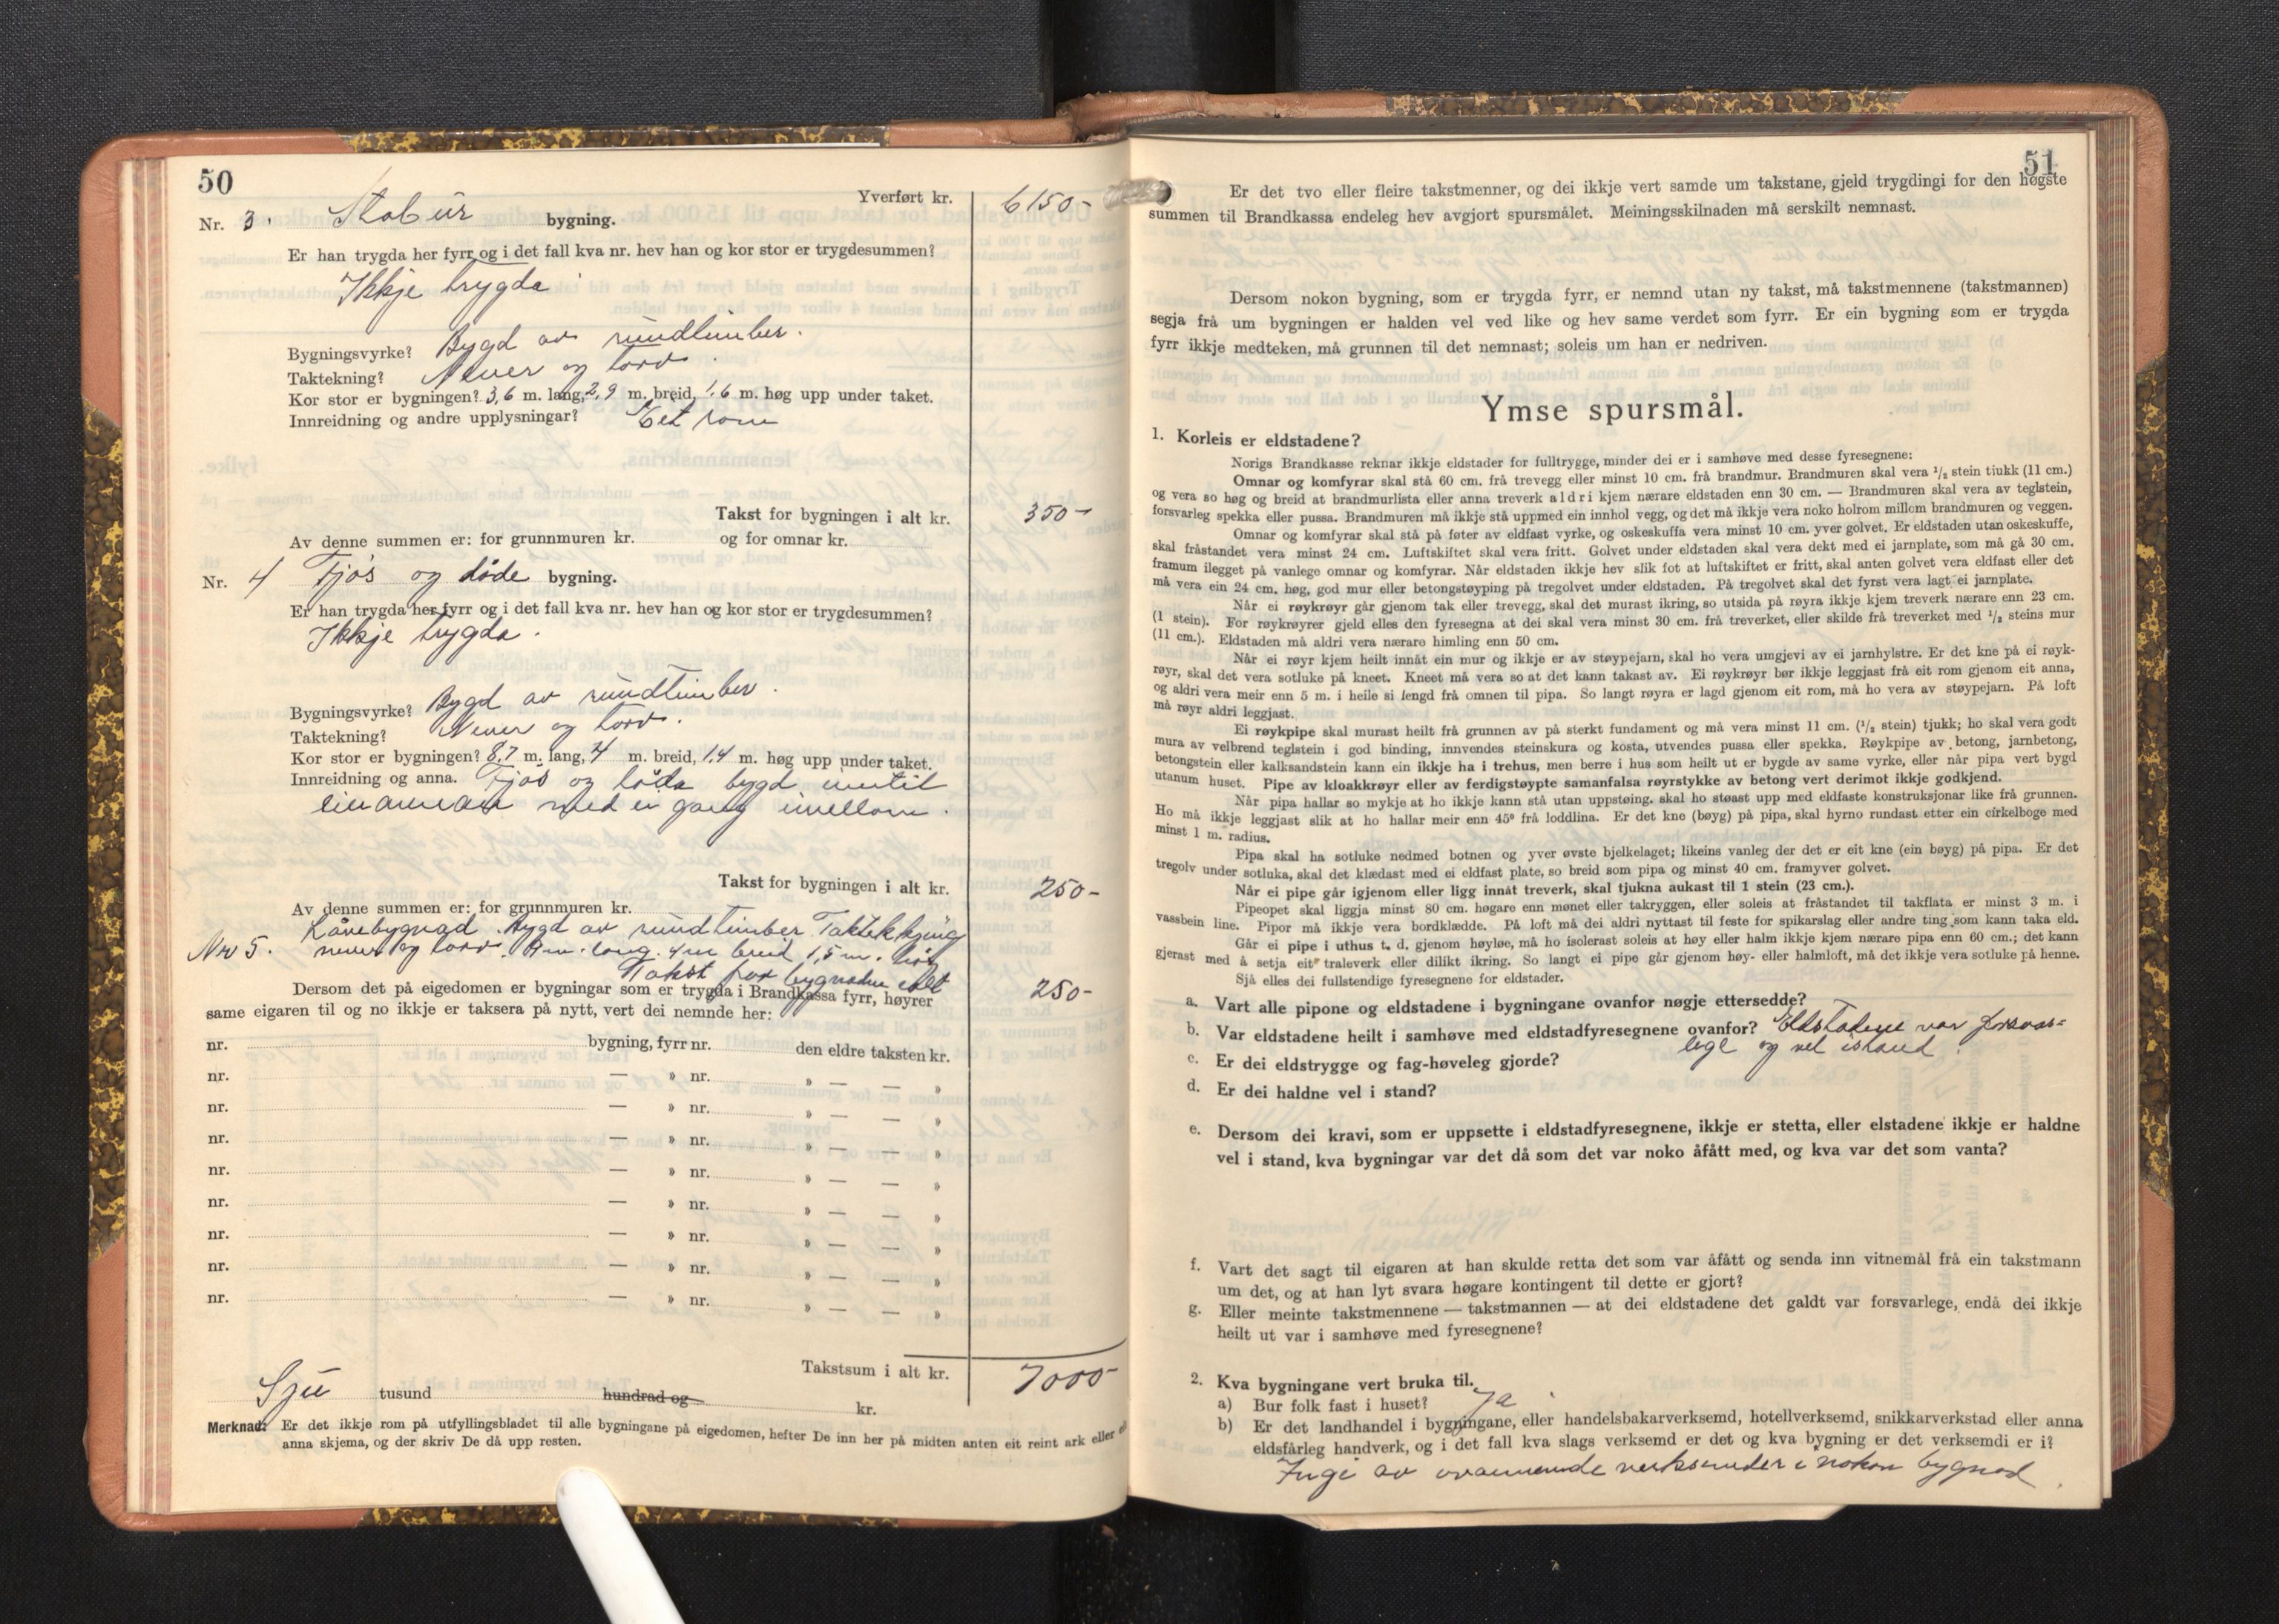 50
Yverført kr. 6150-
Nr. 3. Stabur bygning.
Er han trygda her fyrr og i det fall kva nr. hev han og kor stor er trygdesummen?
Ikkje trygda
Bygningsvyrke? Bygd av rundtimber.
Taktekning? Never og torv.
Kor stor er bygningen? 3,6 m. lang, 2,9 m. breid, 1,6 m. høg upp under taket.
Innreidning og andre upplysningar? Eet rom
Takst for bygningen i alt kr. 350-
Av denne summen er: for grunnmuren kr. og for omnar kr.
Nr. 4 Fjøs og løde bygning.
Er han trygda her fyrr og i det fall kva nr. hev han og kor stor er trygdesummen?
Ikkje trygda.
Bygningsvyrke? Bygd av rundtimber.
Taktekning? Never og torv.
Kor stor er bygningen? 8,7 m. lang, 4 m. breid, 1,4 m. høg upp under taket.
Innreidning og anna. Fjøs og løda bygd inntil
einannan med ei gang imellom.
Takst for bygningen i alt kr. 250-
Av denne summen er: for grunnmuren kr.
Nr 5. Lånebygnad. Bygd av rundtimber. Taktekkjing
never og torv. 9 m. lang. 4 m breid 1,5 m. høg
Takst for bygnaden ialt 250-
Dersom det på eigedomen er bygningar som er trygda i Brandkassa fyrr, høyrer
same eigaren til og no ikkje er taksera på nytt, vert dei nemnde her:
nr. bygning, fyrr nr. den eldre taksten kr.
nr. — » nr. » — — »
nr. — » nr. » — — »
nr. — » nr. » — — »
nr. — » nr. » — — »
nr. — » nr. » — — »
nr. — » nr. » — — »
nr. — » nr. » — — »
nr. — » nr. » — — »
Takstsum i alt kr. 7000-
Sju tusund hundrad og kr.
Merknad: Er det ikkje rom på utfyllingsbladet til alle bygningane på eigedomen, hefter De inn her på midten anten eit reint ark eller
anna skjema, og der skriv De då upp resten.
51
Er det tvo eller fleire takstmenner, og dei ikkje vert samde um takstane, gjeld trygdingi for den høgste
summen til Brandkassa endeleg hev avgjort spursmålet. Meiningsskilnaden må serskilt nemnast.
Dersom nokon bygning, som er trygda fyrr, er nemnd utan ny takst, må takstmennene (takstmannen)
segja frå um bygningen er halden vel ved like og hev same verdet som fyrr. Er ein bygning som er trygda
fyrr ikkje medteken, må grunnen til det nemnast; soleis um han er nedriven.
Ymse spursmål.
1. Korleis er eldstadene?
Norigs Brandkasse reknar ikkje eldstader for fulltrygge, minder dei er i samhøve med desse fyresegnene:
Omnar og komfyrar skal stå 60 cm. frå trevegg eller minst 10 cm. frå brandmur. Brandmuren skal vera 1/2 stein tjukk (11 cm.)
og vera so høg og breid at brandmurlista eller anna treverk aldri kjem nærare eldstaden enn 30 cm. — Brandmuren skal vera av teglstein,
forsvarleg spekka eller pussa. Brandmuren må ikkje stå uppmed ein innhol vegg, og det må ikkje vera noko holrom millom brandmuren og veggen.
Omnar og komfyrar skal stå på føter av eldfast vyrke, og oskeskuffa vera minst 10 cm. yver golvet. Er eldstaden utan oskeskuffe,
skal fråstandet vera minst 24 cm. Luftskiftet skal vera fritt. Golvet under eldstaden skal vera dekt med ei jarnplate, som må gå 30 cm.
framum ilegget på vanlege omnar og komfyrar. Når eldstaden ikkje hev slik fot at luftskiftet er fritt, skal anten golvet vera eldfast eller det
må vera ein 24 cm. høg, god mur eller betongstøyping på tregolvet under eldstaden. På tregolvet skal det fyrst vera lagt ei jarnplate.
Når ei røykrøyr går gjenom tak eller trevegg, skal det murast ikring, so utsida på røyra ikkje kjem treverk nærare enn 23 cm.
(1 stein). For røykrøyrer gjeld elles den fyresegna at dei skal vera minst 30 cm. frå treverket, eller skilde frå treverket med 1/2 steins mur
(11 cm.). Eldstaden må aldri vera nærare himling enn 50 cm.
Når ei røyr kjem heilt innåt ein mur og ikkje er av støypejarn, skal ho vera umgjevi av ei jarnhylstre. Er det kne på ei røyk-
røyr, skal det vera sotluke på kneet. Kneet må vera so at det kann takast av. Ei røykrøyr bør ikkje leggjast frå eit rom gjenom eit anna,
og aldri vera meir enn 5 m. i heile si lengd frå omnen til pipa. So langt røyra er lagd gjenom eit rom, må ho vera av støypejarn. På loft
må røyr aldri leggjast.
Ei røykpipe skal murast heilt frå grunnen av på sterkt fundament og må vera minst 11 cm. (1/2 stein) tjukk; ho skal vera godt
mura av velbrend teglstein i god binding, innvendes steinskura og kosta, utvendes pussa eller spekka. Røykpipe av betong, jarnbetong,
betongstein eller kalksandstein kann ein ikkje ha i trehus, men berre i hus som heilt ut er bygde av same vyrke, eller når pipa vert bygd
utanum huset. Pipe av kloakkrøyr eller av ferdigstøypte samanfalsa røyrstykke av betong vert derimot ikkje godkjend.
Når pipa hallar so mykje at ho ikkje kann stå utan uppstøing. skal ho støast upp med eldfaste konstruksjonar like frå grunnen.
Ho må ikkje leggjast slik at ho hallar meir enn 45° frå loddlina. Er det kne (bøyg) på pipa, skal hyrno rundast etter ein cirkelboge med
minst 1 m. radius.
Pipa skal ha sotluke nedmed botnen og yver øvste bjelkelaget; likeins vanleg der det er eit kne (ein bøyg) på pipa. Er det
tregolv under sotluka, skal det klædast med ei eldfast plate, so breid som pipa og minst 40 cm. framyver golvet.
Når ei pipe går igjenom eller ligg innåt treverk, skal tjukna aukast til 1 stein (23 cm.).
Pipeopet skal liggja minst 80 cm. høgare enn mønet eller takryggen, eller soleis at fråstandet til takflata er minst 3 m. i
vassbein line. Pipor må ikkje vera bordklædde. På loft må dei aldri nyttast til feste for spikarslag eller andre ting som kann taka eld.
Går ei pipe i uthus t. d. gjenom høyløe, må ho isolerast soleis at høy eller halm ikkje kjem nærare pipa enn 60 cm.; det kann
gjerast med å setja eit traleverk eller dilikt ikring. So langt ei pipe går gjenom høy- eller halmloft, må det ikkje vera sotluke på henne.
Sjå elles dei fullstendige fyresegner for eldstader.
a. Vart alle pipone og eldstadene i bygningane ovanfor nøgje ettersedde?
b. Var eldstadene heilt i samhøve med eldstadfyresegnene ovanfor? Eldstadene var forsvar=
lege og vel istand.
c. Er dei eldstrygge og fag-høveleg gjorde?
d. Er dei haldne vel i stand?
e. Dersom dei kravi, som er uppsette i eldstadfyresegnene, ikkje er stetta, eller elstadene ikkje er haldne
vel i stand, kva bygningar var det då som det var noko åfått med, og kva var det som vanta?
f. Vart det sagt til eigaren at han skulde retta det som var åfått og senda inn vitnemål frå ein takstmann
um det, og at han lyt svara høgare kontingent til dette er gjort?
g. Eller meinte takstmennene — takstmannen — at dei eldstadene det galdt var forsvarlege, endå dei ikkje
heilt ut var i samhøve med fyresegnene?
2. Kva bygningane vert bruka til.
a) Bur folk fast i huset? Ja
b) Er det landhandel i bygningane, eller handelsbakarverksemd, hotellverksemd, snikkarverkstad eller anna
eldsfårleg handverk, og i det fall kva slags verksemd er det og kva bygning er det verksemdi er i?
Ingi av ovannemnde verksemder i nokon bygnad.